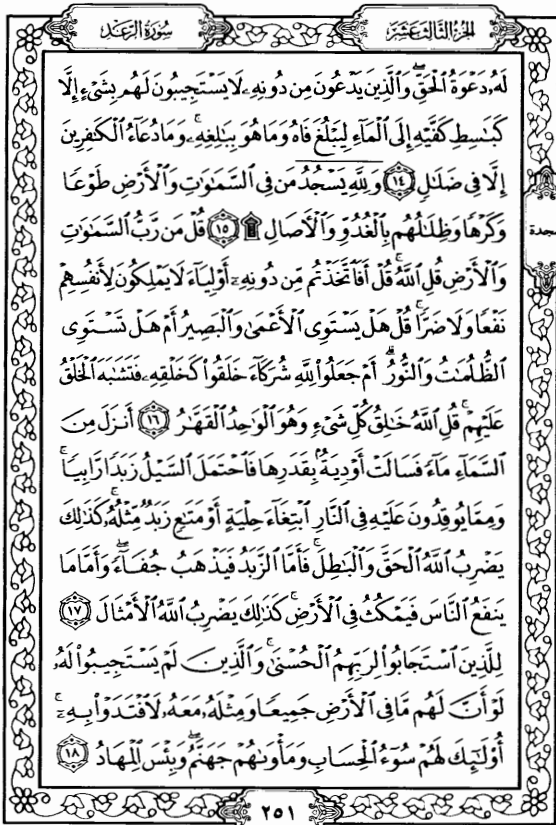 سُورَةُ الرَّعْدِ
الجُزْءُ الثَّالِثَ عَشَرَ
لَهُۥ دَعْوَةُ الْحَقِّ ۖ وَالَّذِينَ يَدْعُونَ مِن دُونِهِۦ لَا يَسْتَجِيبُونَ لَهُم بِشَىْءٍ إِلَّا
كَبَٰسِطِ كَفَّيْهِ إِلَى الْمَآءِ لِيَبْلُغَ فَاهُ وَمَا هُوَ بِبَٰلِغِهِۦ ۚ وَمَا دُعَآءُ الْكَٰفِرِينَ
إِلَّا فِى ضَلَٰلٍ ١٤ وَلِلَّهِ يَسْجُدُ مَن فِى السَّمَٰوَٰتِ وَالْأَرْضِ طَوْعًا
وَكَرْهًا وَظِلَٰلُهُم بِالْغُدُوِّ وَالْأٓصَالِ ۩ ١٥ قُلْ مَن رَّبُّ السَّمَٰوَٰتِ
وَالْأَرْضِ قُلِ اللَّهُ ۚ قُلْ أَفَاتَّخَذْتُم مِّن دُونِهِۦٓ أَوْلِيَآءَ لَا يَمْلِكُونَ لِأَنفُسِهِمْ
نَفْعًا وَلَا ضَرًّا ۚ قُلْ هَلْ يَسْتَوِى الْأَعْمَىٰ وَالْبَصِيرُ أَمْ هَلْ تَسْتَوِى
الظُّلُمَٰتُ وَالنُّورُ ۗ أَمْ جَعَلُوا۟ لِلَّهِ شُرَكَآءَ خَلَقُوا۟ كَخَلْقِهِۦ فَتَشَٰبَهَ الْخَلْقُ
عَلَيْهِمْ ۚ قُلِ اللَّهُ خَٰلِقُ كُلِّ شَىْءٍ وَهُوَ الْوَٰحِدُ الْقَهَّٰرُ ١٦ أَنزَلَ مِنَ
السَّمَآءِ مَآءً فَسَالَتْ أَوْدِيَةٌۢ بِقَدَرِهَا فَاحْتَمَلَ السَّيْلُ زَبَدًا رَّابِيًا ۚ
وَمِمَّا يُوقِدُونَ عَلَيْهِ فِى النَّارِ ابْتِغَآءَ حِلْيَةٍ أَوْ مَتَٰعٍ زَبَدٌ مِّثْلُهُۥ ۚ كَذَٰلِكَ
يَضْرِبُ اللَّهُ الْحَقَّ وَالْبَٰطِلَ ۚ فَأَمَّا الزَّبَدُ فَيَذْهَبُ جُفَآءً ۖ وَأَمَّا مَا
يَنفَعُ النَّاسَ فَيَمْكُثُ فِى الْأَرْضِ ۚ كَذَٰلِكَ يَضْرِبُ اللَّهُ الْأَمْثَالَ ١٧
لِلَّذِينَ اسْتَجَابُوا۟ لِرَبِّهِمُ الْحُسْنَىٰ ۚ وَالَّذِينَ لَمْ يَسْتَجِيبُوا۟ لَهُۥ
لَوْ أَنَّ لَهُم مَّا فِى الْأَرْضِ جَمِيعًا وَمِثْلَهُۥ مَعَهُۥ لَافْتَدَوْا۟ بِهِۦٓ ۚ
أُو۟لَٰٓئِكَ لَهُمْ سُوٓءُ الْحِسَابِ وَمَأْوَىٰهُمْ جَهَنَّمُ ۖ وَبِئْسَ الْمِهَادُ ١٨
سجدة
٢٥١